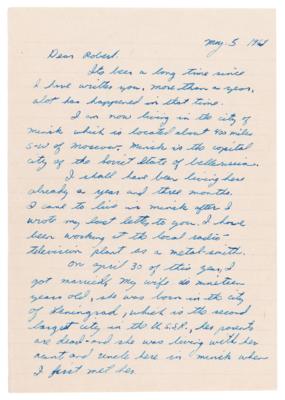 May 5 1961
Dear Robert.
Its been a long time since
I have written you, more than a year,
alot has happened in that time.
I am now living in the city of
minsk which is located about 400 miles
S-W of moscow. Minsk is the capital
city of the Soviet State of bellerussia.
I shall have been living here
already a year and three months.
I came to live in minsk after I
wrote my last letter to you. I have
been working at the local radio-
television plant as a metal-smith.
On april 30 of this year, I
got married. My wife is nineteen
years old, she was born in the city
of Leningrad, which is the second
largest city in the U.S.S.R., her parents
are dead and she was living with her
aunt and uncle here in minsk when
I first met her.